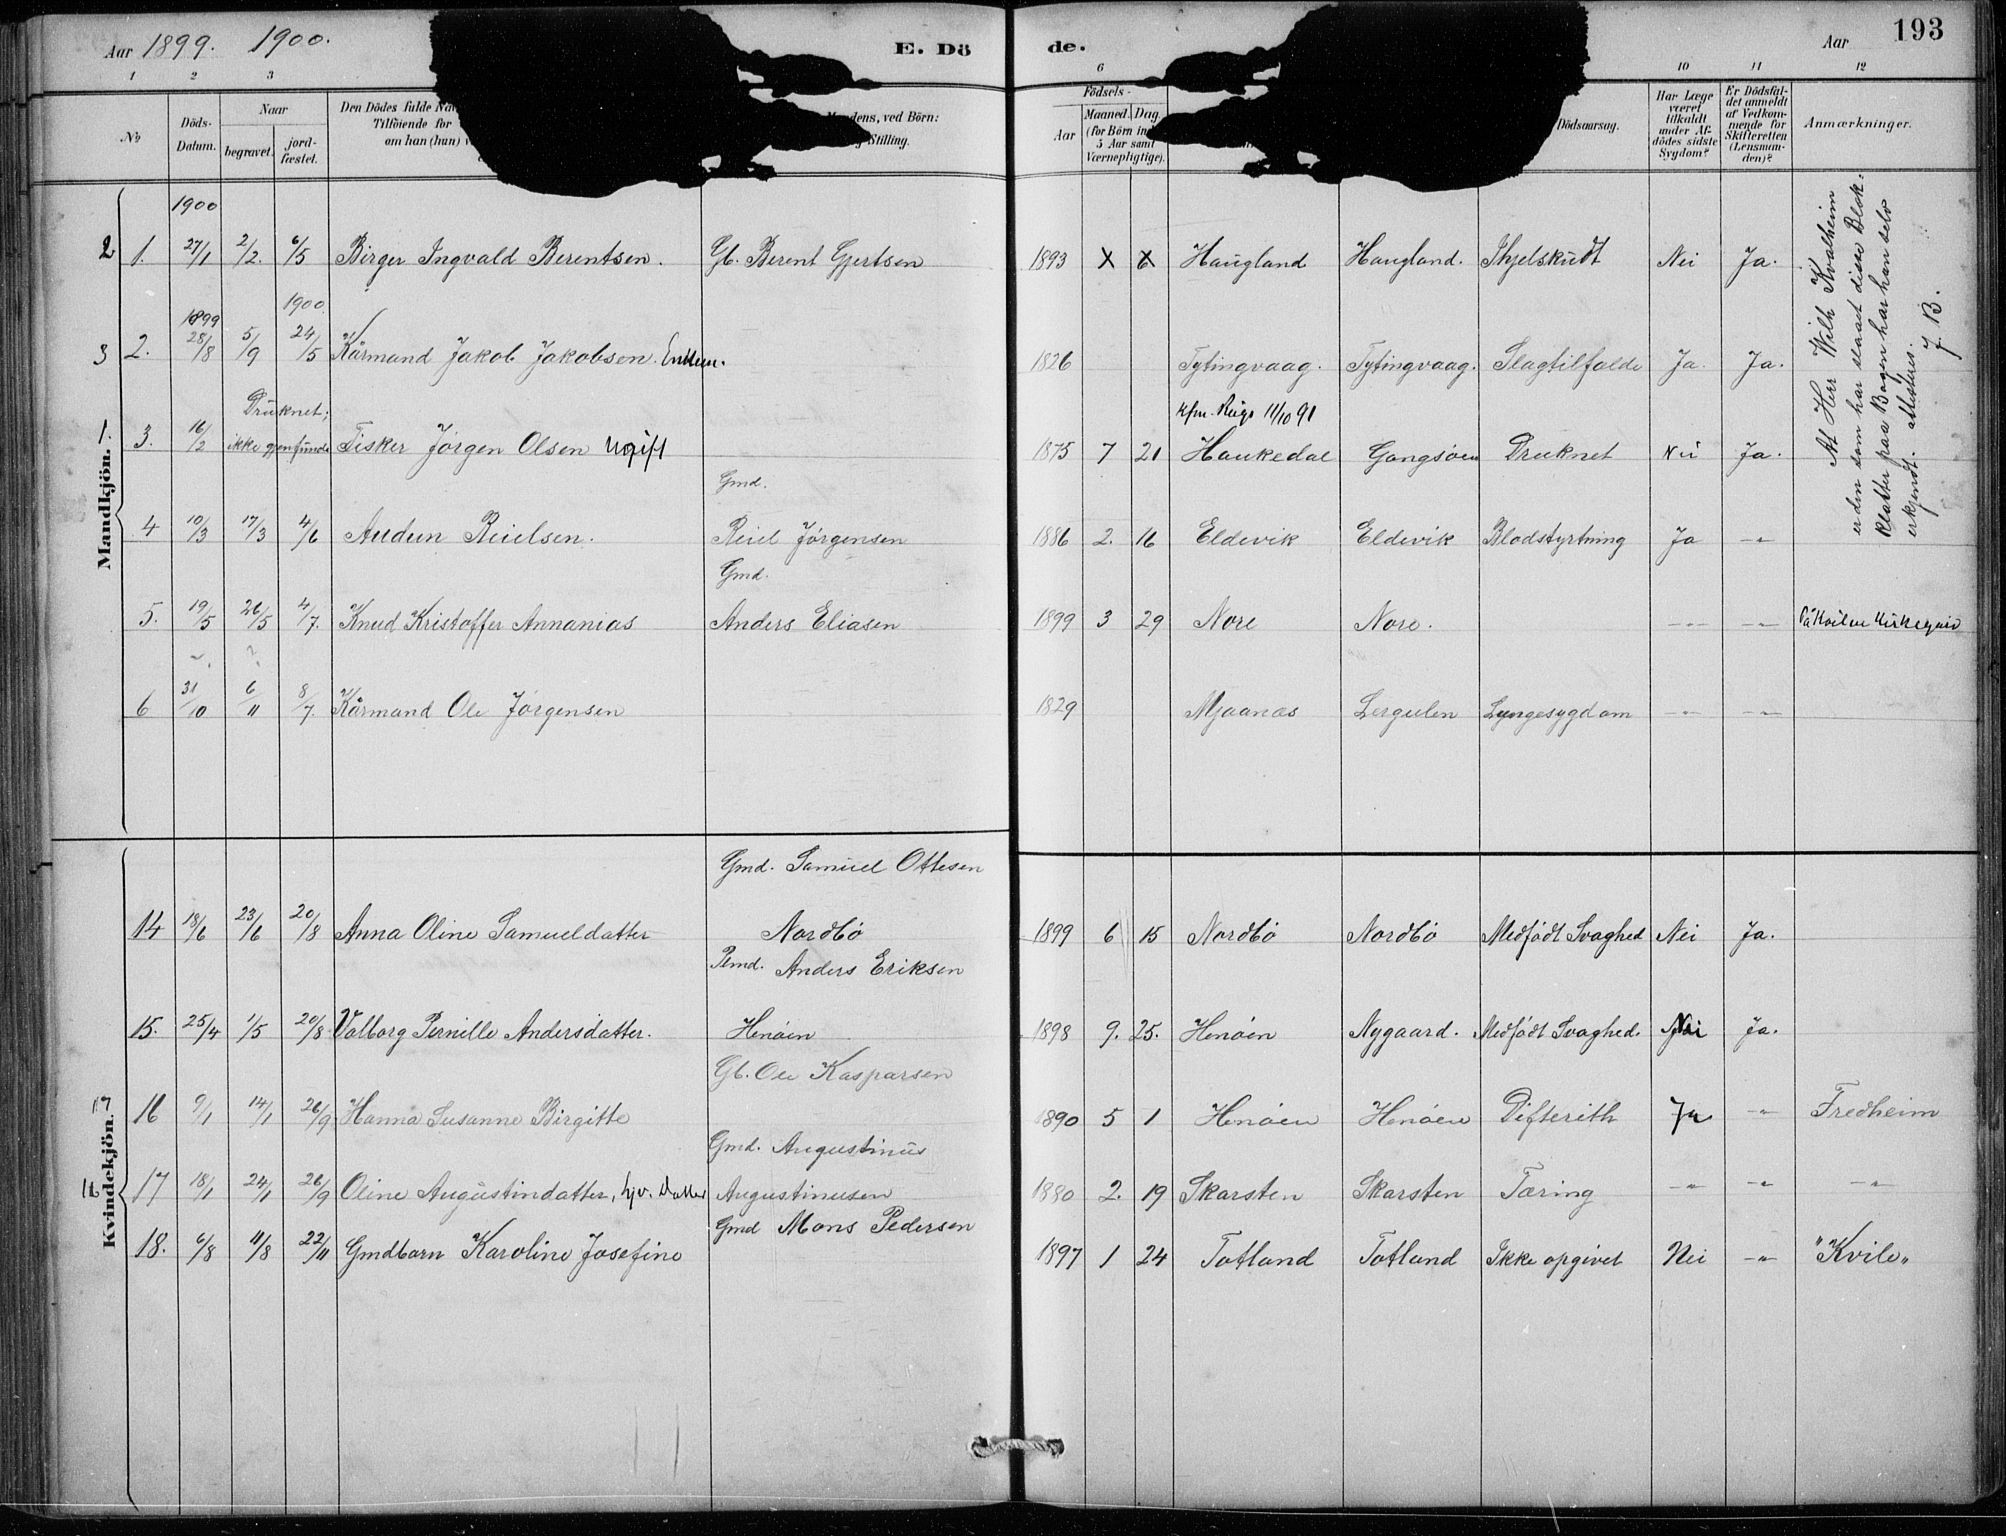 Aar 1899. 1900. E. Döde. Aar 193
1 2 3 6 10 11 12
No Döds-Datum. Naar begravet. jordfæstet. Den Dödes fulde Tilföiende for om han (hun) Mandens, ved Börn: Stilling. Födsels- Aar Maaned. Dag. (for Börn 5 Aar samt Værnepligtige). Dödsaarsag. Har Læge været tilkaldt under Afdödes sidste Sygdom? Er Dödsfaldet anmeldt af Vedkommende for Skifteretten (Lensmanden)? Anmærkninger.
Mandkjön.
1900
2 1. 27/1 2/2. 6/5 Birger Ingvald Berentsen. Gb. Berent Gjertsen 1893 X 6 Haugland Haugland. Ihjelskudt Nei Ja.
1899 1900.
3 2. 28/8 5/9 24/5 Kårmand Jakob Jakobsen. Enkem. 1826 Tytingvaag. Tytingvaag. Slagtilfalde Ja. Ja.
Druknet; kfm. 11/10 91
1. 3. 16/2 ikke gjenfunde Fisker Jørgen Olsen ugift 1875 7 21 Haukedal Gangsøen Druknet Nei Ja.
Gmd.
4 10/3 17/3 4/6 Audun Reielsen. Reiel Jörgensen 1886 2. 16 Eldevik Eldevik Blodstyrtning Ja -"-
Gmd.
5. 19/5 26/5 4/7. Knud Kristoffer Annanias Anders Eliasen 1899 3 29 Nore Nore. -"- -"- På Kvilen Kirkegård
6 31/10 6/11 8/7. Kårmand Ole Jörgensen 1829 Mjaanæs Lergulen Lungesygdom -"- -"-
At Herr Wilh Kvalheim
er den som har slaaet disse Blæk-
klatter paa Bogen har han selv
erkjendt. attesteres.
J. B.
Kvindekjön.
Gmd. Samuel Ottesen
14 18/6 23/6 20/8 Anna Oline Samueldatter Nordbö 1899 6 15 Nordbö Nordbö Medfödt Svaghed Nei Ja.
Pmd. Anders Eriksen
15. 25/4 1/5 20/8 Valborg Pernille Andersdatter. Henöen 1898 9. 25. Henöen Nygaard. Medfödt Svaghed. Nei Ja.
Gb. Ole Kasparsen
17 16 9/1 14/1 26/9 Hanna Susanne Birgitte 1890 5 1 Henöen Henöen Difterith Ja -"- Fredheim
Gmd. Augustinus
16 17 18/1 24/1 26/9 Oline Augustindatter, hjv. Datter Augustinusen 1880 2. 19 Skarsten Skarsten Tæring -"- -"- -"-
Gmd Mons Pedersen
18. 6/8 11/8 22/11 Gmdbarn Karoline Josefine 1897 1 24 Totland Totland Ikke opgivet Nei -"- "Kvile"